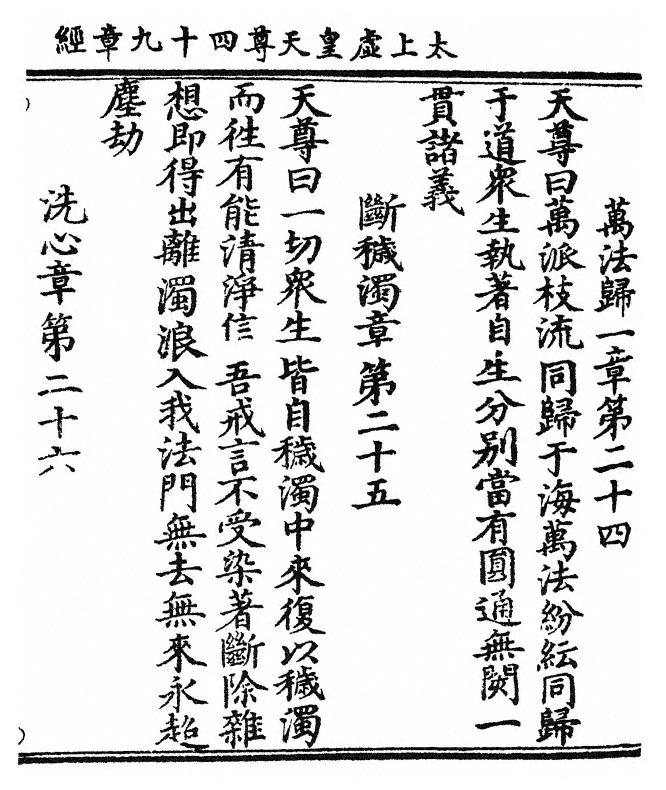 太上虛皇天尊四十九章經
萬法歸一章第二十四
天尊曰萬派枝流同歸于海萬法紛紜同歸
于道衆生執著自生分別當有圓通無闕一
貫諸義
斷穢濁章第二十五
天尊曰一切衆生皆自穢濁中來復以穢濁
而徃有能清淨信吾戒言不受染著斷除雜
想即得出離濁浪入我法門無去無來永超
塵劫
洗心章第二十六